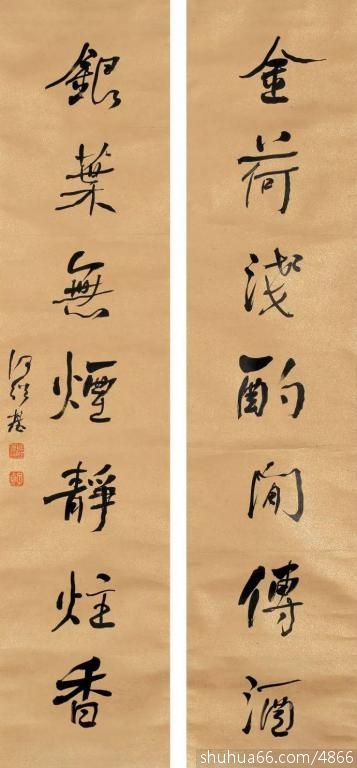 金荷淺酌閒傳酒
銀葉無煙靜炷香
何紹基
shuhua66.com/4866